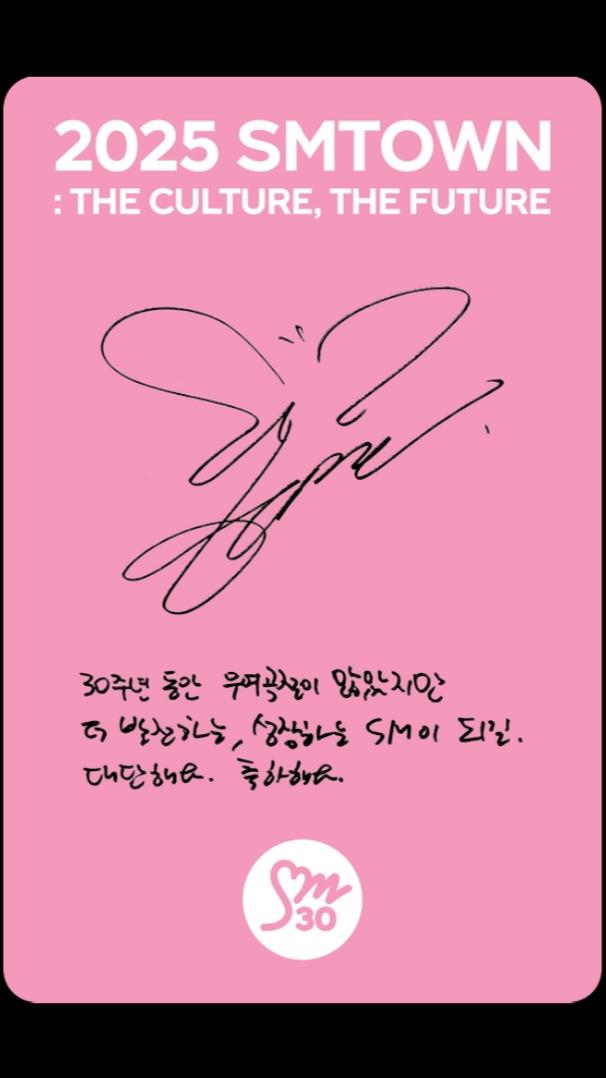 2025 SMTOWN
: THE CULTURE, THE FUTURE
30주년 동안 우여곡절이 많았지만
더 발전하는, 성장하는 SM이 되길.
대단해요. 축하해요.
Sm
30